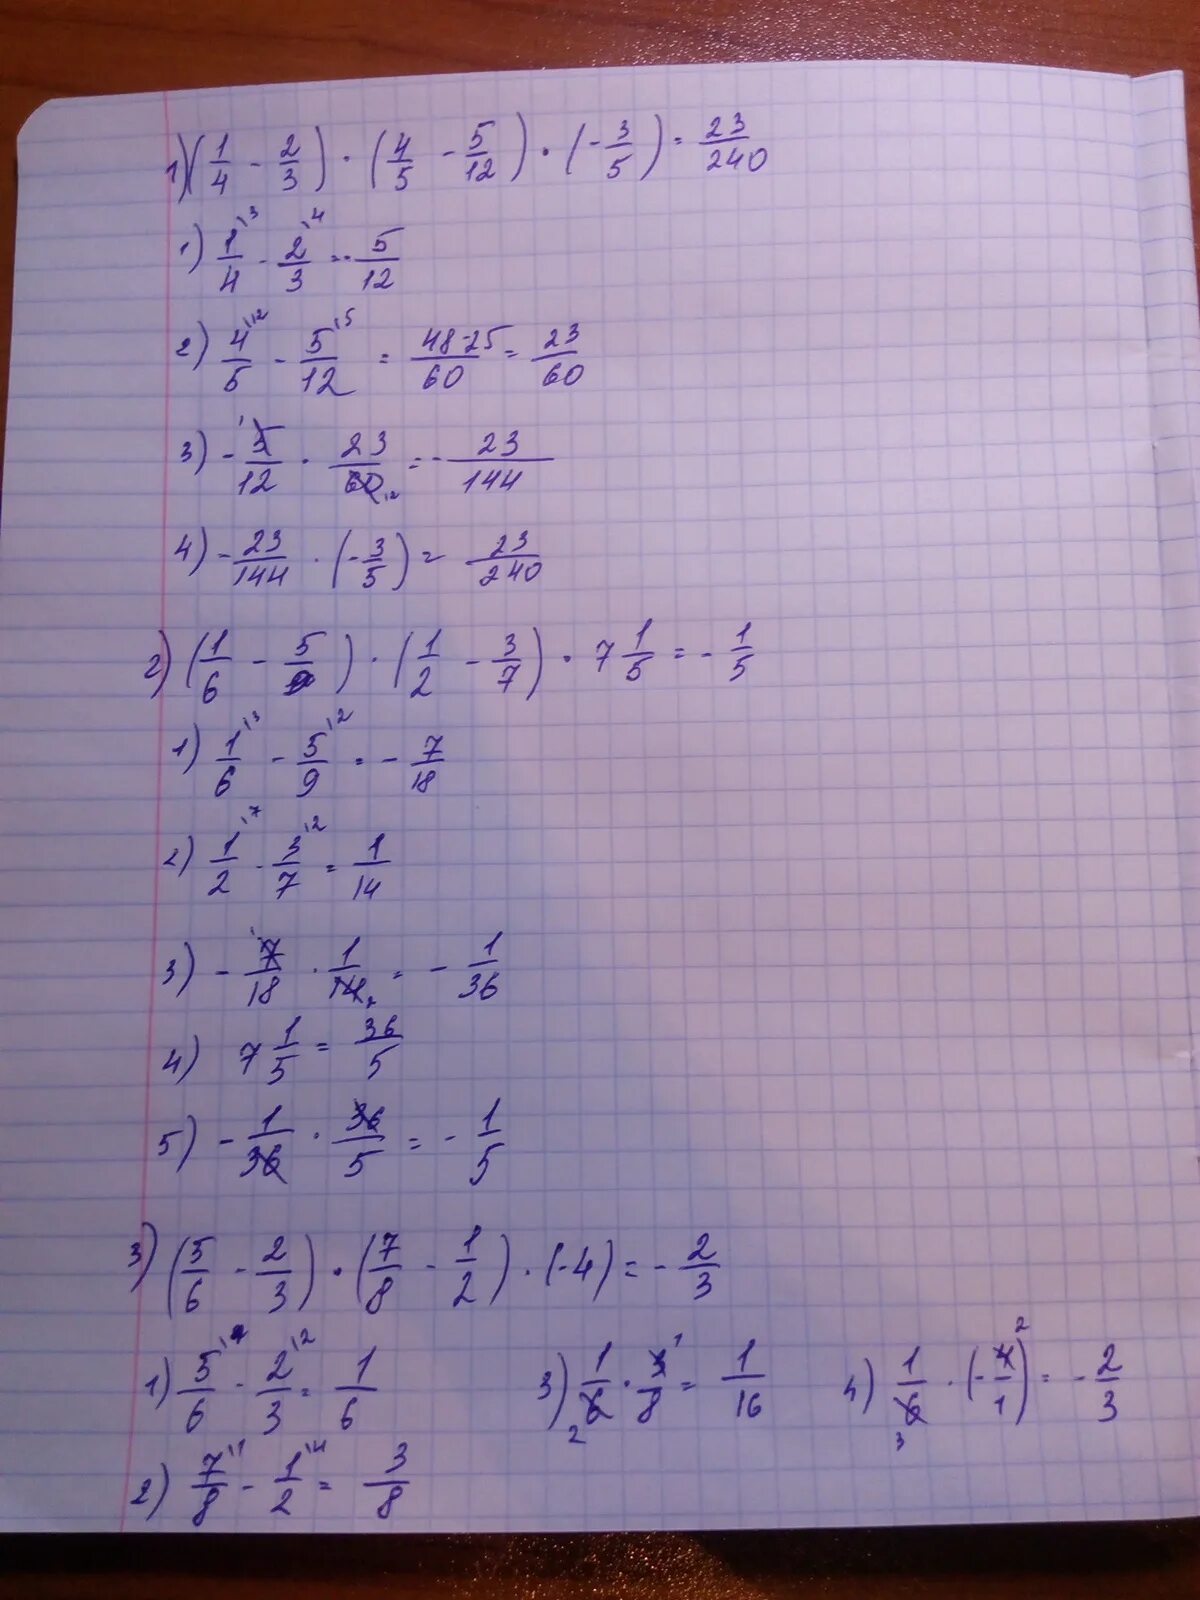 1) (1/4 - 2/3) · (4/5 - 5/12) · (-3/5) = 23/240
1) 1/4 \3 - 2/3 \4 = - 5/12
2) 4/5 \12 - 5/12 \5 = 48-25/60 = 23/60
3) - 5/12 1 · 23/60 12 = - 23/144
4) - 23/144 · (-3/5) = 23/240
2) (1/6 - 5/9) · (1/2 - 3/7) · 7 1/5 = - 1/5
1) 1/6 \3 - 5/9 \2 = - 7/18
2) 1/2 \7 - 3/7 \2 = 1/14
3) - 7/18 · 1/14 2 = - 1/36
4) 7 1/5 = 36/5
5) - 1/36 · 36/5 = - 1/5
3) (5/6 - 2/3) · (7/8 - 1/2) · (-4) = - 2/3
1) 5/6 - 2/3 \2 = 1/6
3) 1/6 2 · 3/8 1 = 1/16
4) 1/6 3 · (- 4/1 2) = - 2/3
2) 7/8 \1 - 1/2 \4 = 3/8